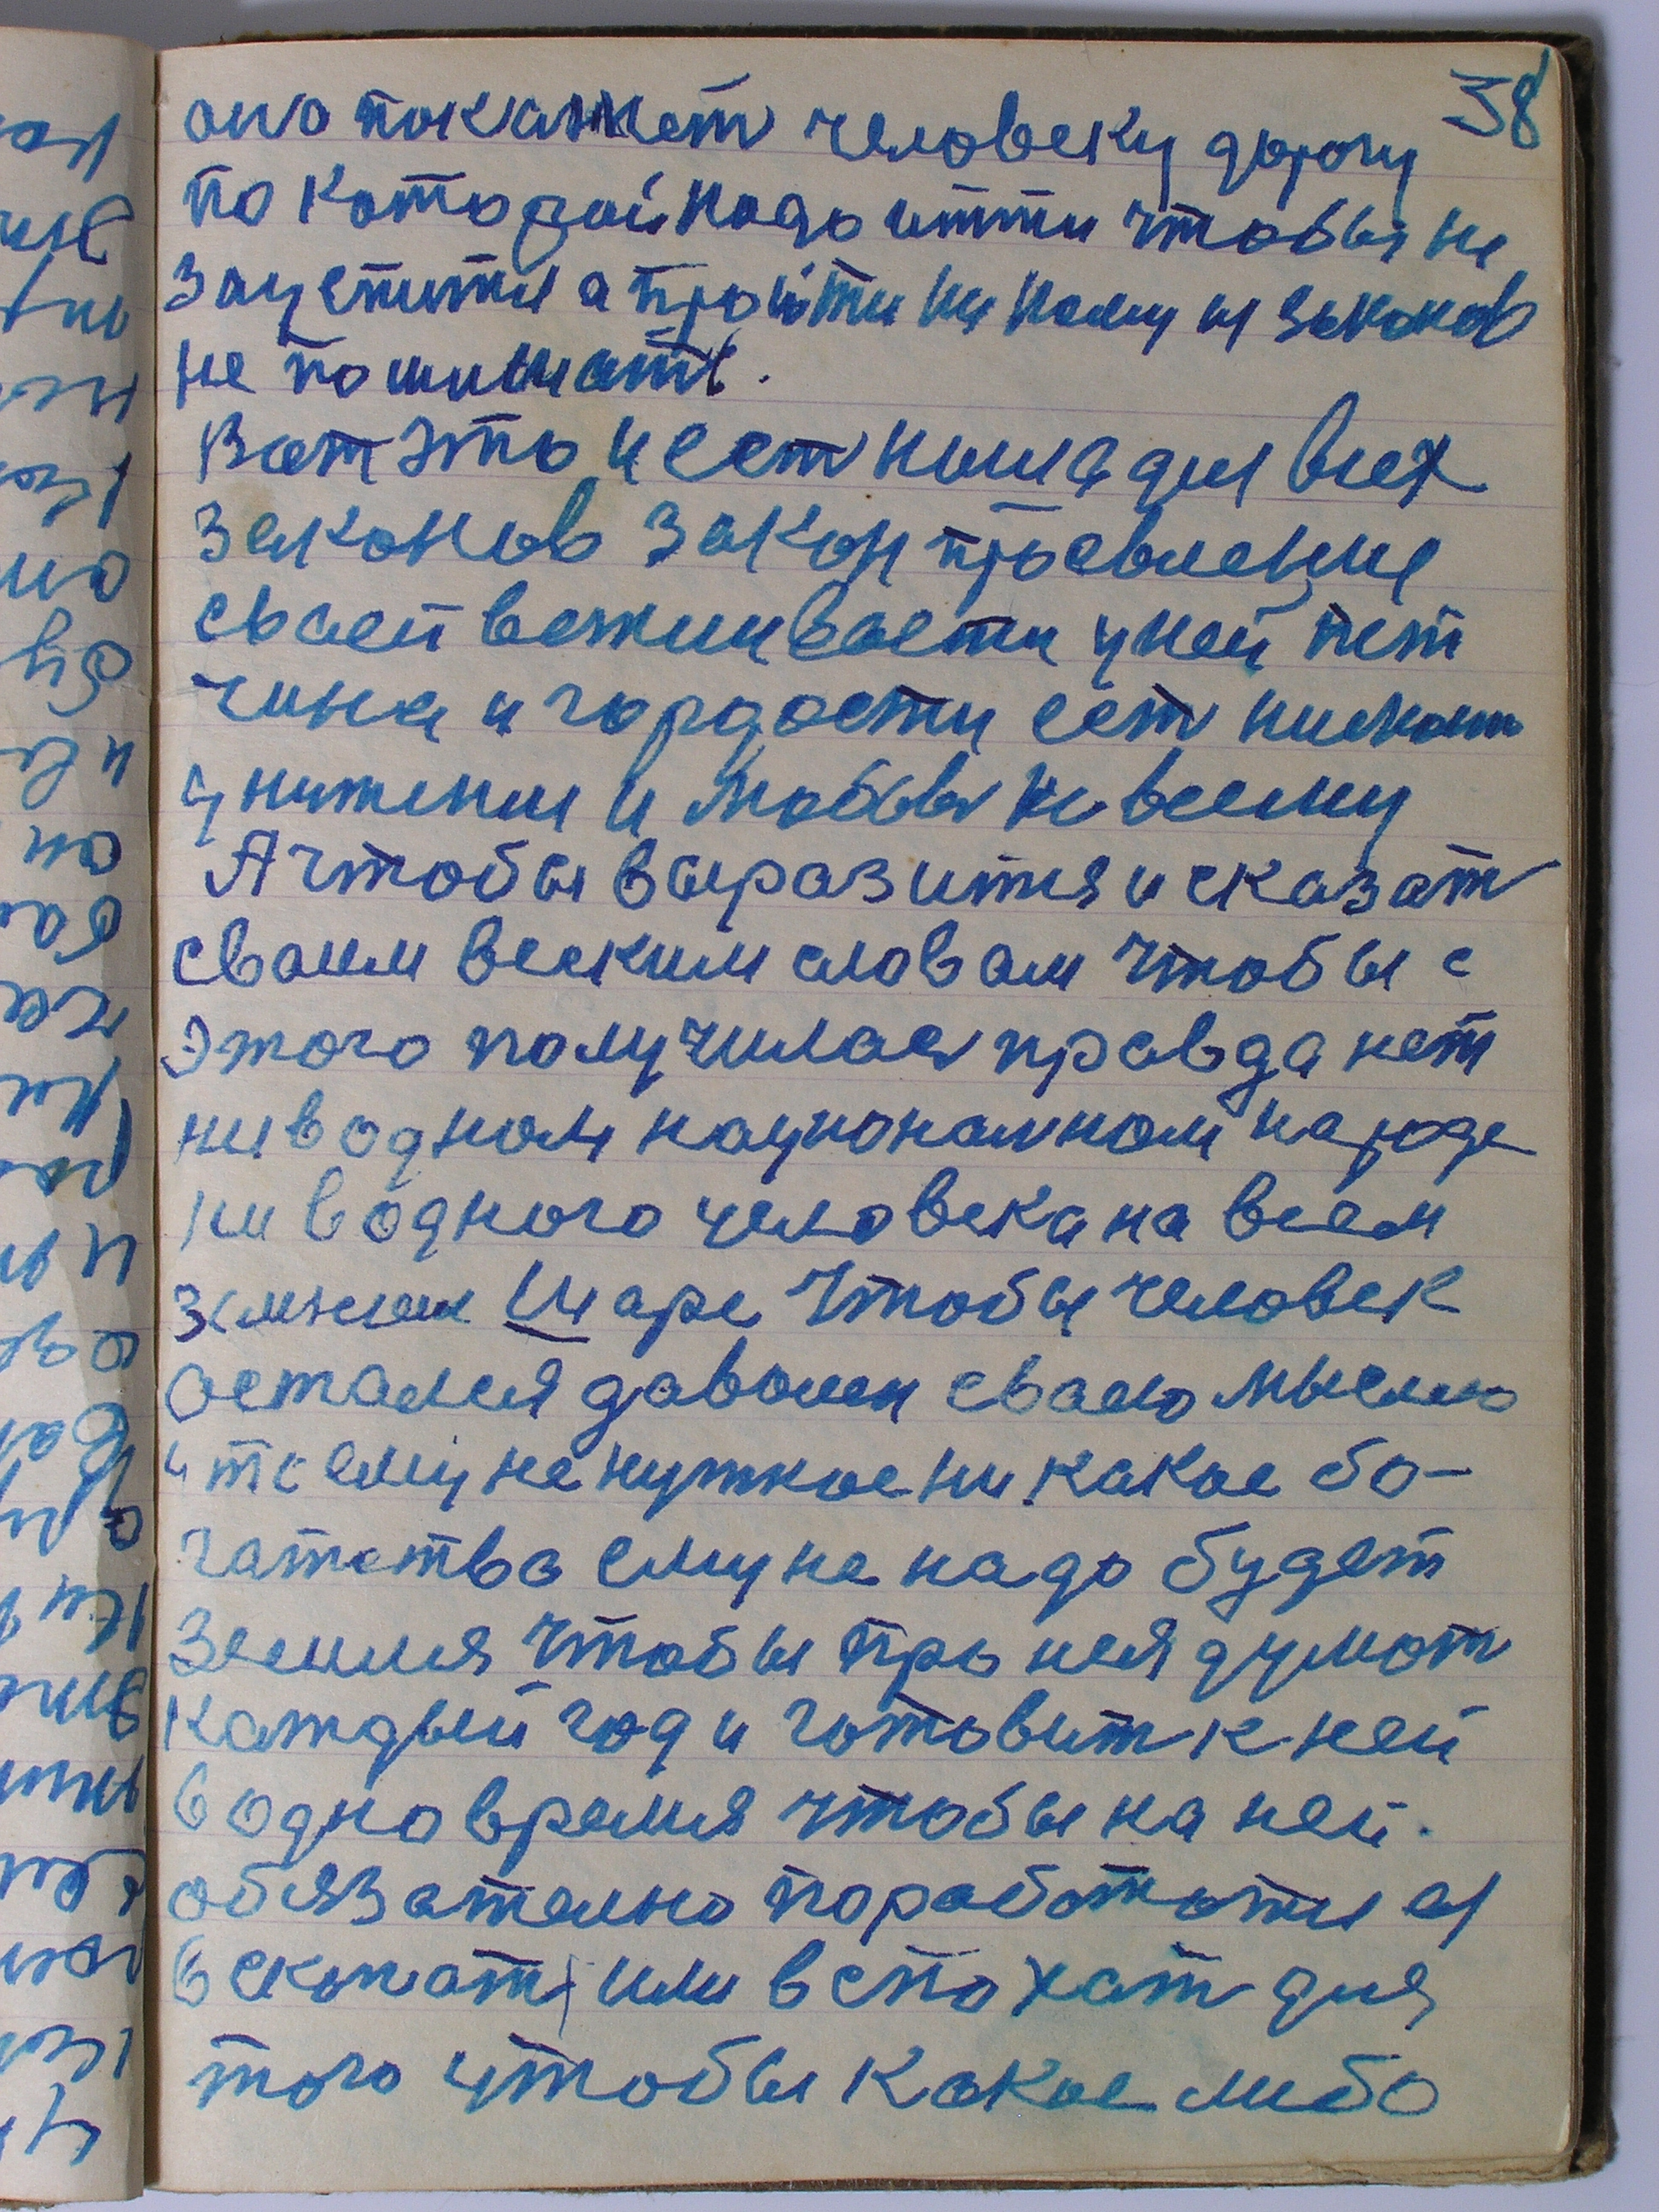 38
оно покажет человеку дорогу
по каторай надо итти чтобы не
а пройти законов
не
Вот это и ест для всех
законов закон проевление
сваей вежливаети у ней нет
чина и гордости ест нискат
унижении и любовь ко всему
А чтобы выразится и сказат
сваим веским словам чтобы с
этого получилас правда нет
ни в одном националном народе
ни в одного человека на всем
земном Шаре чтобы человек
астался даволен сваею мыслю
что ему не нужное ни какое бо-
гатства ему не надо будет
Земля чтобы про нея думат
каждый год и готовит к ней
в одно время чтобы на ней.
обязателно поработат
вскопат или вспохат для
того чтобы какое либо